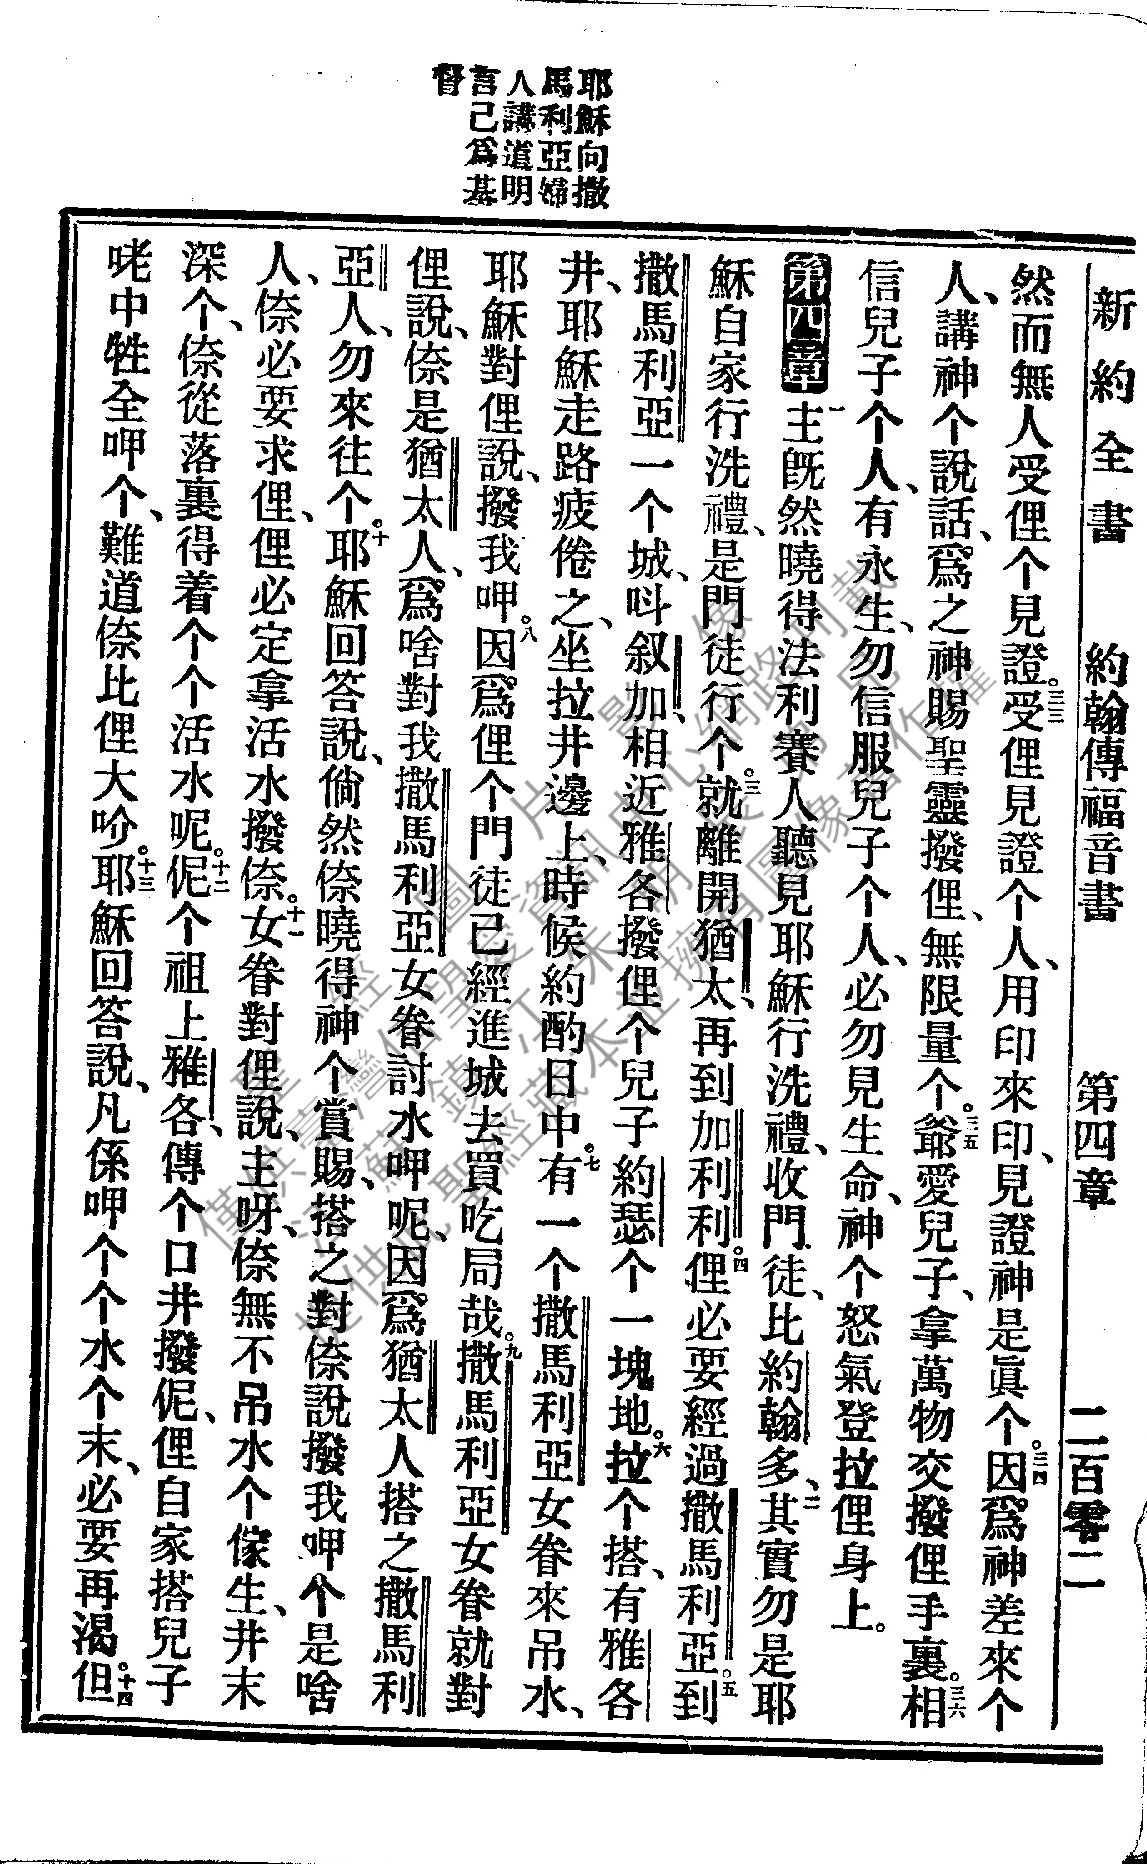 新約全書　約翰傳福音書　第四章　二百零二
然而無人受俚个見證。三三受俚見證个人、用印來印、見證神是眞个。三四因爲神差來个
人、講神个說話、爲之神賜聖靈撥俚、無限量个。三五爺愛兒子、拿萬物交撥俚手裏。三六相
信兒子个人、有永生、勿信服兒子个人、必勿見生命、神个怒氣登拉俚身上。
第四章　一主旣然曉得法利賽人聽見耶穌行洗禮、收門徒、比約翰多、二其實勿是耶
穌自家行洗禮、是門徒行个。三就離開猶太、再到加利利。四俚必要經過撒馬利亞。五到
撒馬利亞一个城、呌叙加、相近雅各撥俚个兒子約瑟个一塊地。六拉个搭、有雅各
井、耶穌走路疲倦之、坐拉井邊上、時候約酌日中。七有一个撒馬利亞女眷來吊水、
耶穌對俚說、撥我呷。八因爲俚个門徒已經進城去買吃局哉。九撒馬利亞女眷就對
俚說、倷是猶太人、爲啥對我撒馬利亞女眷討水呷呢、因爲猶太人搭之撒馬利
亞人、勿來往个。十耶穌回答說、倘然倷曉得神个賞賜、搭之對倷說撥我呷个是啥
人、倷必要求俚、俚必定拿活水撥倷。十一女眷對俚說、主呀、倷無不吊水个傢生、井末
深个、倷從落裏得着个个活水呢。十二伲个祖上雅各、傳个口井撥伲、俚自家搭兒子
咾中牲全呷个、難道倷比俚大吤。十三耶穌回答說、凡係呷个个水个末、必要再渴。十四但
耶穌向撒
馬利亞婦
人講道明
言己爲基
督